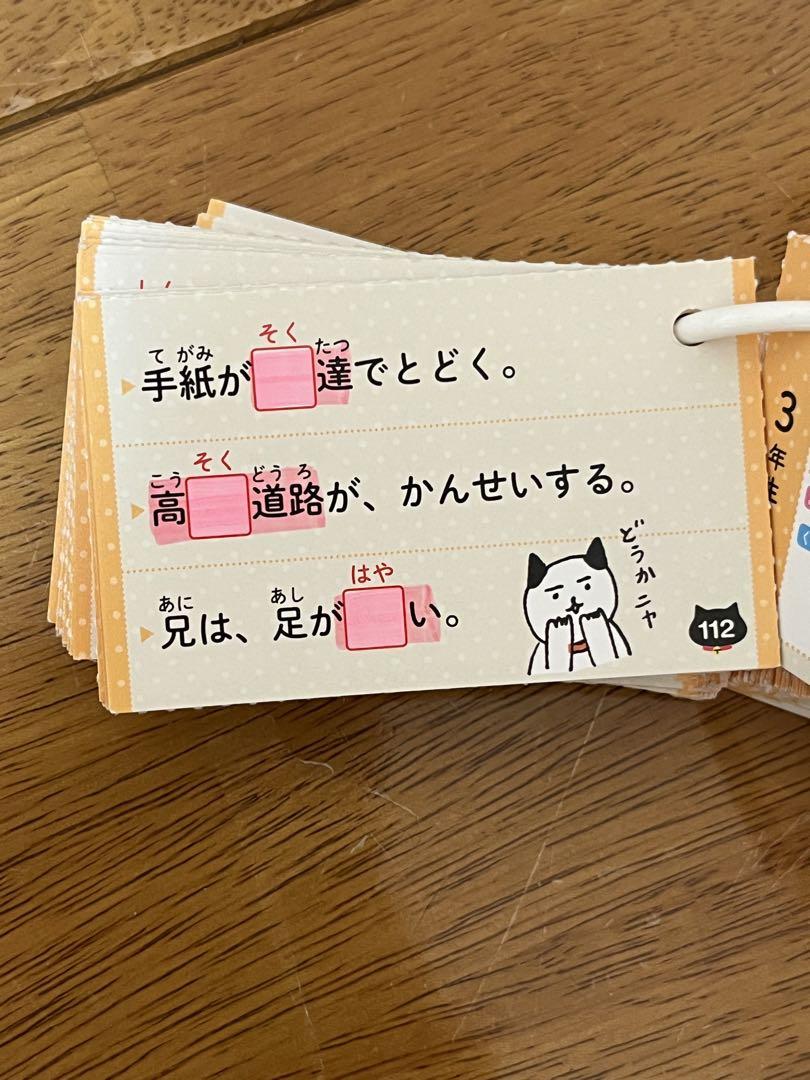 てがみ そく たつ
手紙が□達でとどく。
こう そく どうろ
高□道路が、かんせいする。
あに あし はや
兄は、足が□い。
どうかニャ
112
3
年